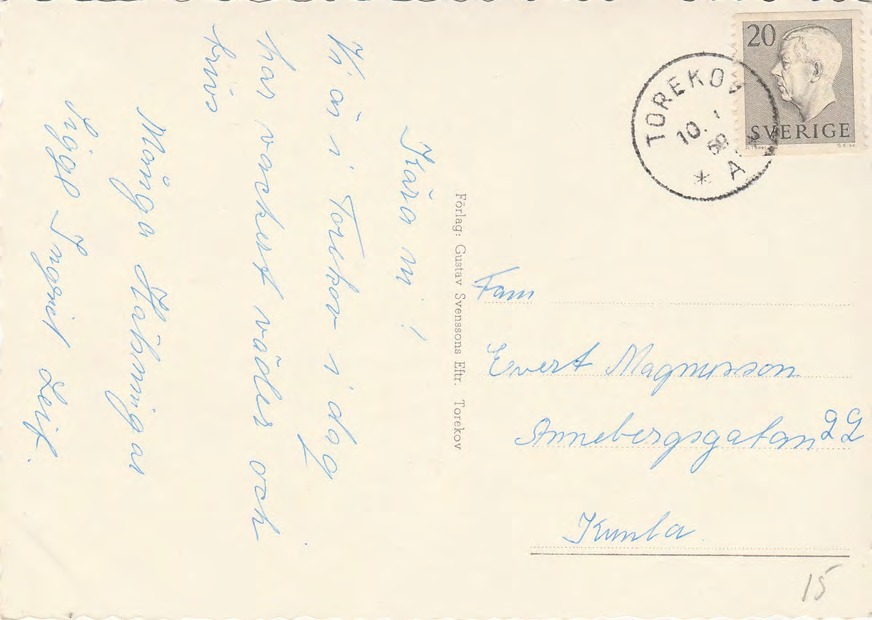 Kära ni!
Vi är i Torekov i dag
har vackert väder och
trivs
Många Hälsningar
Sigge Ingrid Leif.
Förlag: Gustav Svenssons Eftr. Torekov
20
SVERIGE
TOREKOV
10. 1
58
* A
Fam
Evert Magnusson
Annebergsgatan 22
Kumla
15